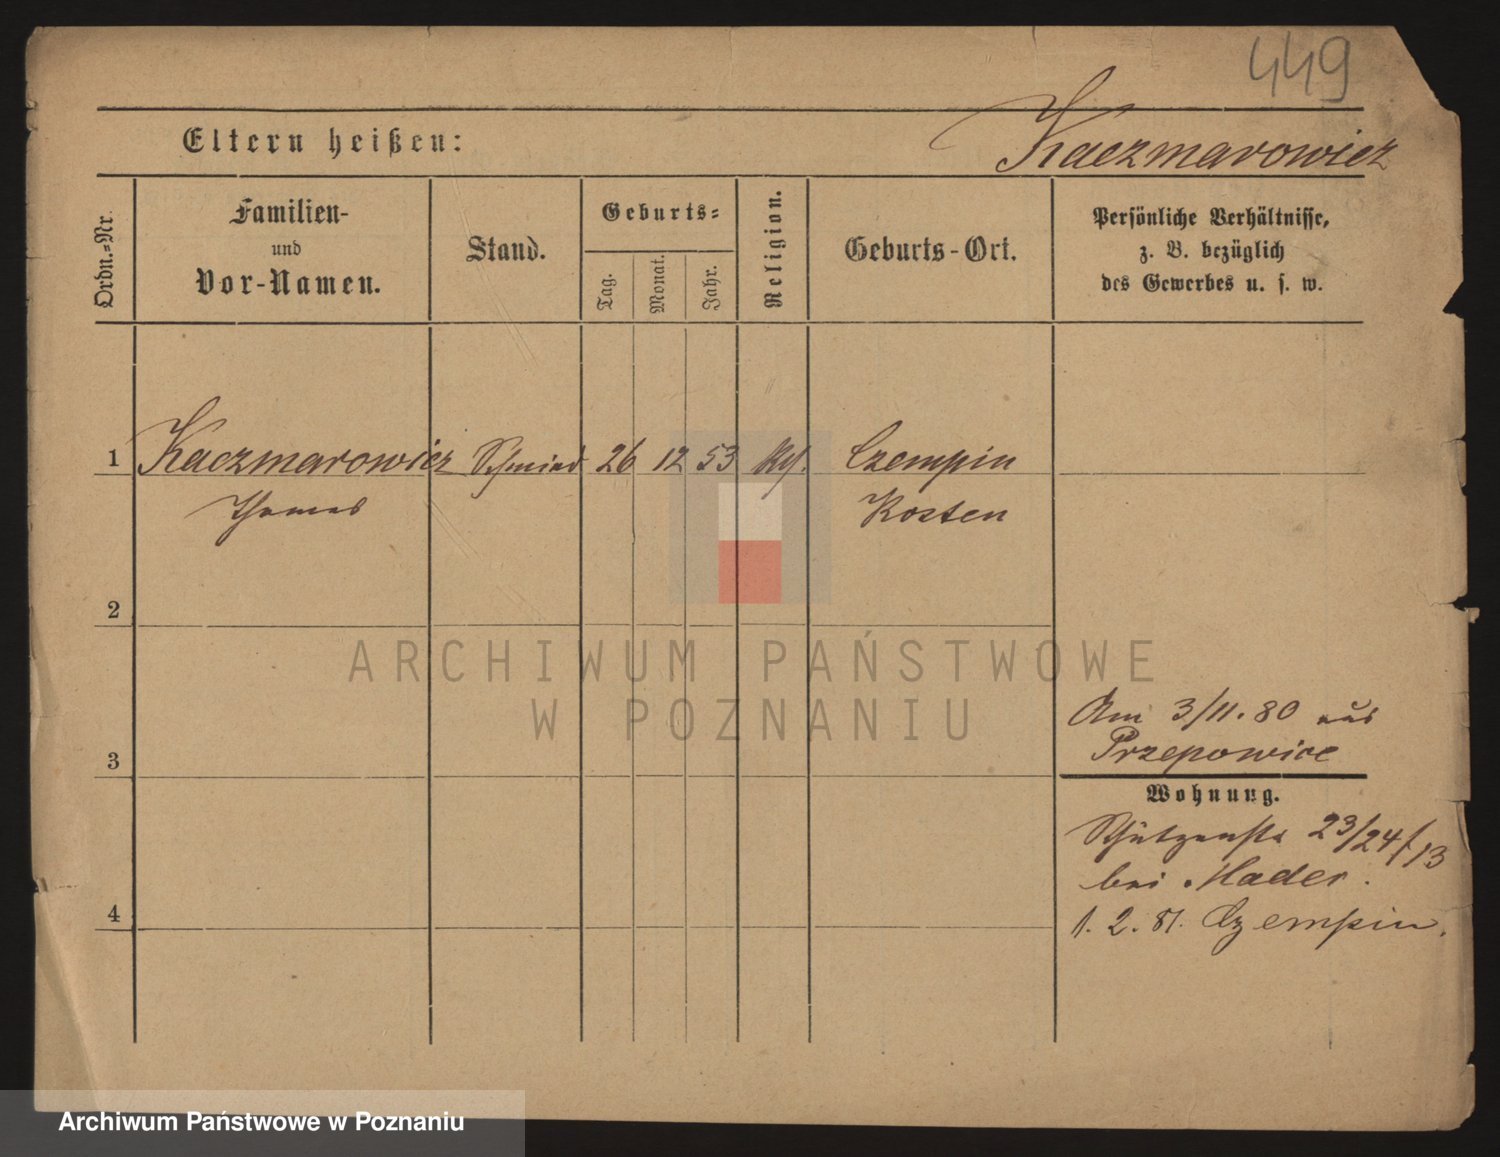 449
Eltern heißen:
Kaczmarowicz
Ordn.-Nr.
Familien-
und
Vor-Namen.
Stand.
Geburts-
Tag.
Monat.
Jahr.
Religion.
Geburts-Ort.
Persönliche Verhältnisse,
z. B. bezüglich
des Gewerbes u. s. w.
1 Kaczmarowicz Schmied 26 12 53 Czempin
Thomas Kosten
2
ARCHIWUM PAŃSTWOWE
W POZNANIU
3
Am 3/11. 80 aus
Przepowice
Wohnung.
Schützenstr 23/24/13
bei Mader.
4
1. 2. 81. Czempin.
Archiwum Państwowe w Poznaniu